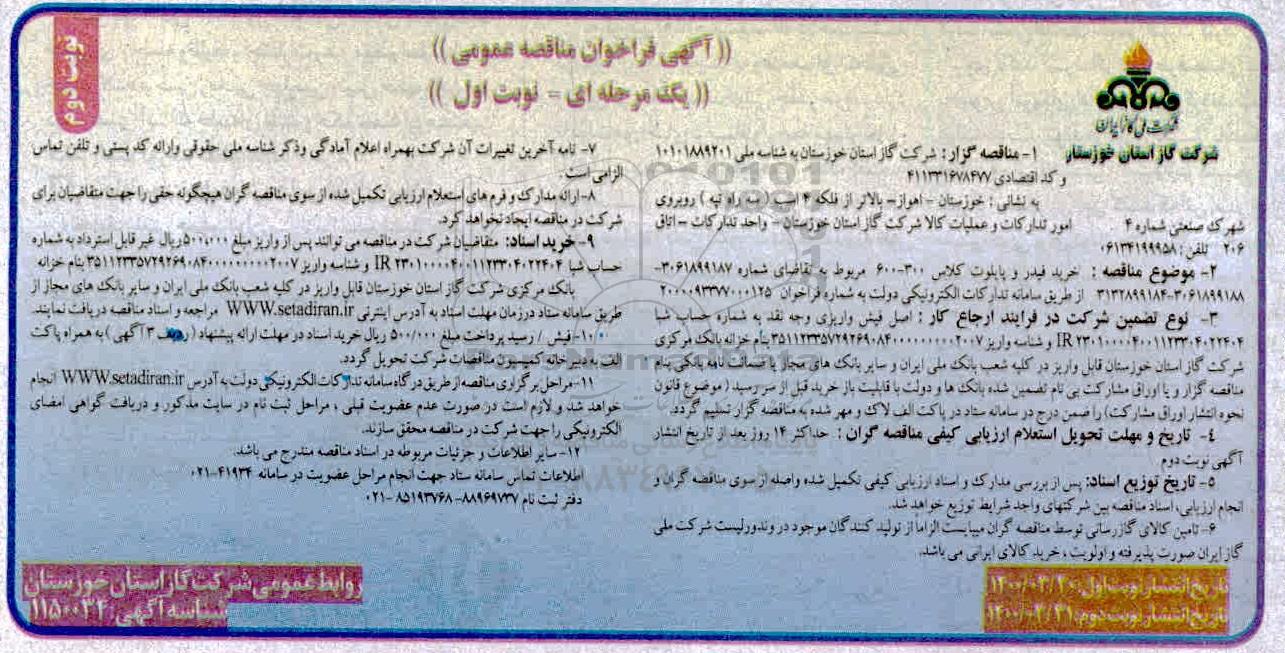 نوبت دوم
(( آگهی فراخوان مناقصه عمومی ))
(( یک مرحله ای = نوبت اول ))
شرکت ملی گاز ایران
شرکت گاز استان خوزستان
۱- مناقصه گزار: شرکت گاز استان خوزستان به شناسه ملی ۱۰۱۰۱۸۸۹۲۰۱
و کد اقتصادی ۴۱۱۳۳۱۶۷۸۴۷۷
به نشانی: خوزستان - اهواز- بالاتر از فلکه ۴ اسب ( سه راه تپه ) روبروی
شهرک صنعتی شماره ۴ امور تدارکات و عملیات کالا شرکت گاز استان خوزستان - واحد تدارکات - اتاق
۲۰۶ تلفن: ۰۶۱۳۴۱۹۹۹۵۸
۲- موضوع مناقصه : خرید فیدر و پایلوت کلاس ۳۰۰-۶۰۰ مربوط به تقاضای شماره ۳۰۶۱۸۹۹۱۸۷-
۳۰۶۱۸۹۹۱۸۸-۳۱۳۲۸۹۹۱۸۴ از طریق سامانه تدارکات الکترونیکی دولت به شماره فراخوان ۲۰۰۰۰۹۳۳۷۷۰۰۰۱۲۵
۳- نوع تضمین شرکت در فرایند ارجاع کار : اصل فیش واریزی وجه نقد به شماره حساب شبا
IR ۲۳۰۱۰۰۰۰۴۰۰۱۱۲۳۳۰۴۰۲۲۴۰۴ و شناسه واریز ۳۵۱۱۲۳۳۵۷۲۹۲۶۹۰۸۴۰۰۰۰۰۰۰۰۰۰۲۰۰۷ بنام خزانه بانک مرکزی
شرکت گاز استان خوزستان قابل واریز در کلیه شعب بانک ملی ایران و سایر بانک های مجاز یا ضمانت نامه بانکی بنام
مناقصه گزار و یا اوراق مشارکت بی نام تضمین شده بانک ها و دولت با قابلیت باز خرید قبل از سر رسید ( موضوع قانون
نحوه انتشار اوراق مشارکت) را ضمن درج در سامانه ستاد در پاکت الف لاک و مهر شده به مناقصه گزار تسلیم گردد.
۴- تاریخ و مهلت تحویل استعلام ارزیابی کیفی مناقصه گران : حداکثر ۱۴ روز بعد از تاریخ انتشار
آگهی نوبت دوم
۵- تاریخ توزیع اسناد: پس از بررسی مدارک و اسناد ارزیابی کیفی تکمیل شده واصله از سوی مناقصه گران و
انجام ارزیابی، اسناد مناقصه بین شرکتهای واجد شرایط توزیع خواهد شد.
۶- تامین کالای گازرسانی توسط مناقصه گران میبایست الزاما از تولید کنندگان موجود در وندورلیست شرکت ملی
گاز ایران صورت پذیرفته و اولویت ، خرید کالای ایرانی می باشد.
۷- نامه آخرین تغییرات آن شرکت بهمراه اعلام آمادگی وذکر شناسه ملی حقوقی وارائه کد پستی و تلفن تماس
الزامی است
۸- ارائه مدارک و فرم های استعلام ارزیابی تکمیل شده از سوی مناقصه گران هیچگونه حقی را جهت متقاضیان برای
شرکت در مناقصه ایجاد نخواهد کرد.
۹- خرید اسناد: متقاضیان شرکت در مناقصه می توانند پس از واریز مبلغ ۵۰۰،۰۰۰ریال غیر قابل استرداد به شماره
حساب شبا IR ۲۳۰۱۰۰۰۰۴۰۰۱۱۲۳۳۰۴۰۲۲۴۰۴ و شناسه واریز ۳۵۱۱۲۳۳۵۷۲۹۲۶۹۰۸۴۰۰۰۰۰۰۰۰۰۰۲۰۰۷ بنام خزانه
بانک مرکزی شرکت گاز استان خوزستان قابل واریز در کلیه شعب بانک ملی ایران و سایر بانک های مجاز از
طریق سامانه ستاد در زمان مهلت اسناد به آدرس اینترنتی WWW.setadiran.ir مراجعه و اسناد مناقصه دریافت نمایند.
۱۰- فیش / رسید پرداخت مبلغ ۵۰۰/۰۰۰ ریال خرید اسناد در مهلت ارائه پیشنهاد ( ردیف ۳ آگهی ) به همراه پاکت
الف به دبیرخانه کمیسیون مناقصات شرکت تحویل گردد.
۱۱- مراحل برگزاری مناقصه از طریق درگاه سامانه تدارکات الکترونیکی دولت به آدرس WWW.setadiran.ir انجام
خواهد شد و لازم است در صورت عدم عضویت قبلی ، مراحل ثبت نام در سایت مذکور و دریافت گواهی امضای
الکترونیکی را جهت شرکت در مناقصه محقق سازند.
۱۲- سایر اطلاعات و جزئیات مربوطه در اسناد مناقصه مندرج می باشد.
اطلاعات تماس سامانه ستاد جهت انجام مراحل عضویت در سامانه ۴۱۹۳۴-۰۲۱
دفتر ثبت نام ۸۸۹۶۹۷۳۷- ۸۵۱۹۳۷۶۸ -۰۲۱
تاریخ انتشار نوبت اول: ۱۴۰۰/۰۳/۳۰
تاریخ انتشار نوبت دوم: ۱۴۰۰/۰۳/۳۱
روابط عمومی شرکت گاز استان خوزستان
شناسه آگهی: ۱۱۵۰۰۳۴